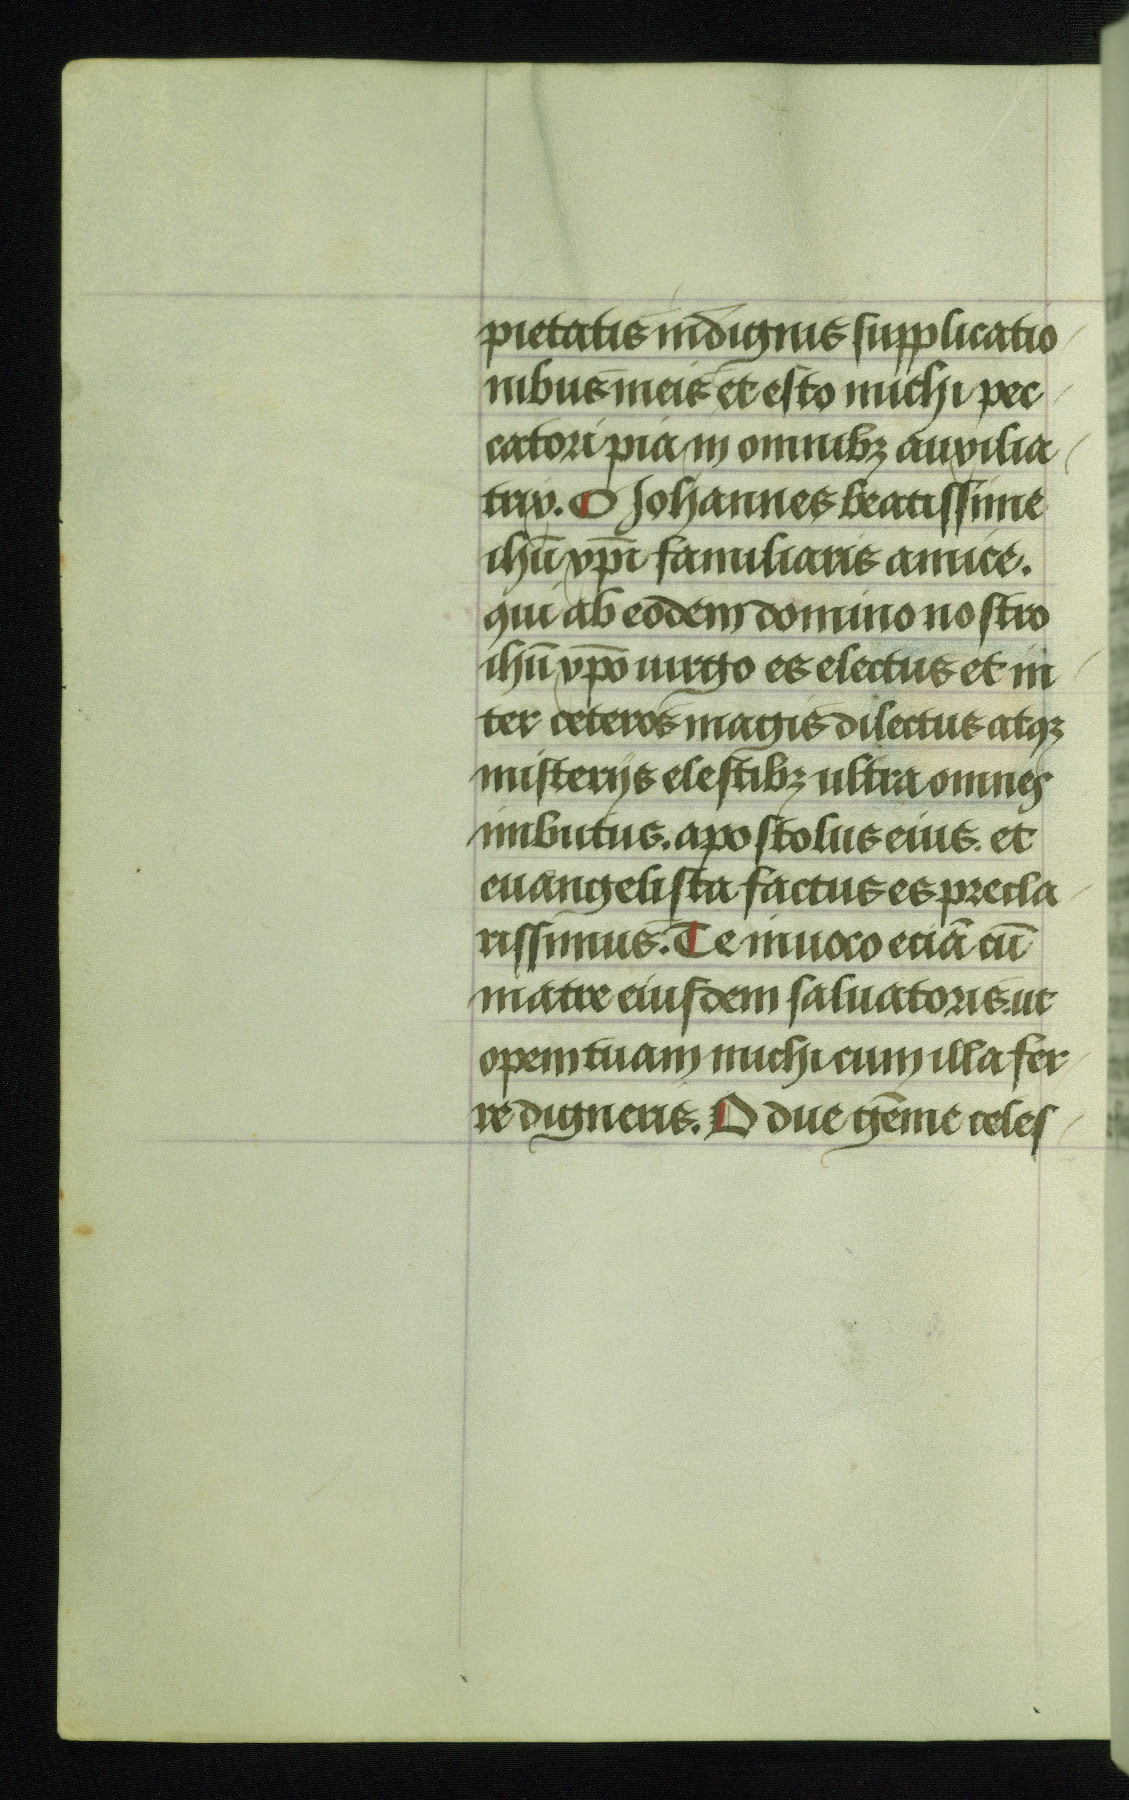 pietatis indignis supplicatio
nibus meis et esto michi pec
catori pia in omnibꝫ auxilia
trix. O Johannes beatissime
ihū xp̄i familiaris amice.
qui ab eodem domino nostro
ihū xp̄o uirgo es electus et in
ter ceteros magis dilectus atqꝫ
misterijs elestibꝫ ultra omnes
imbutus. apostolus eius. et
euangelista factus es precla
rissimus. Te inuoco eciā cū
matre eiusdem saluatoris. ut
opem tuam michi cum illa fer
re digneris. O due gēme celes